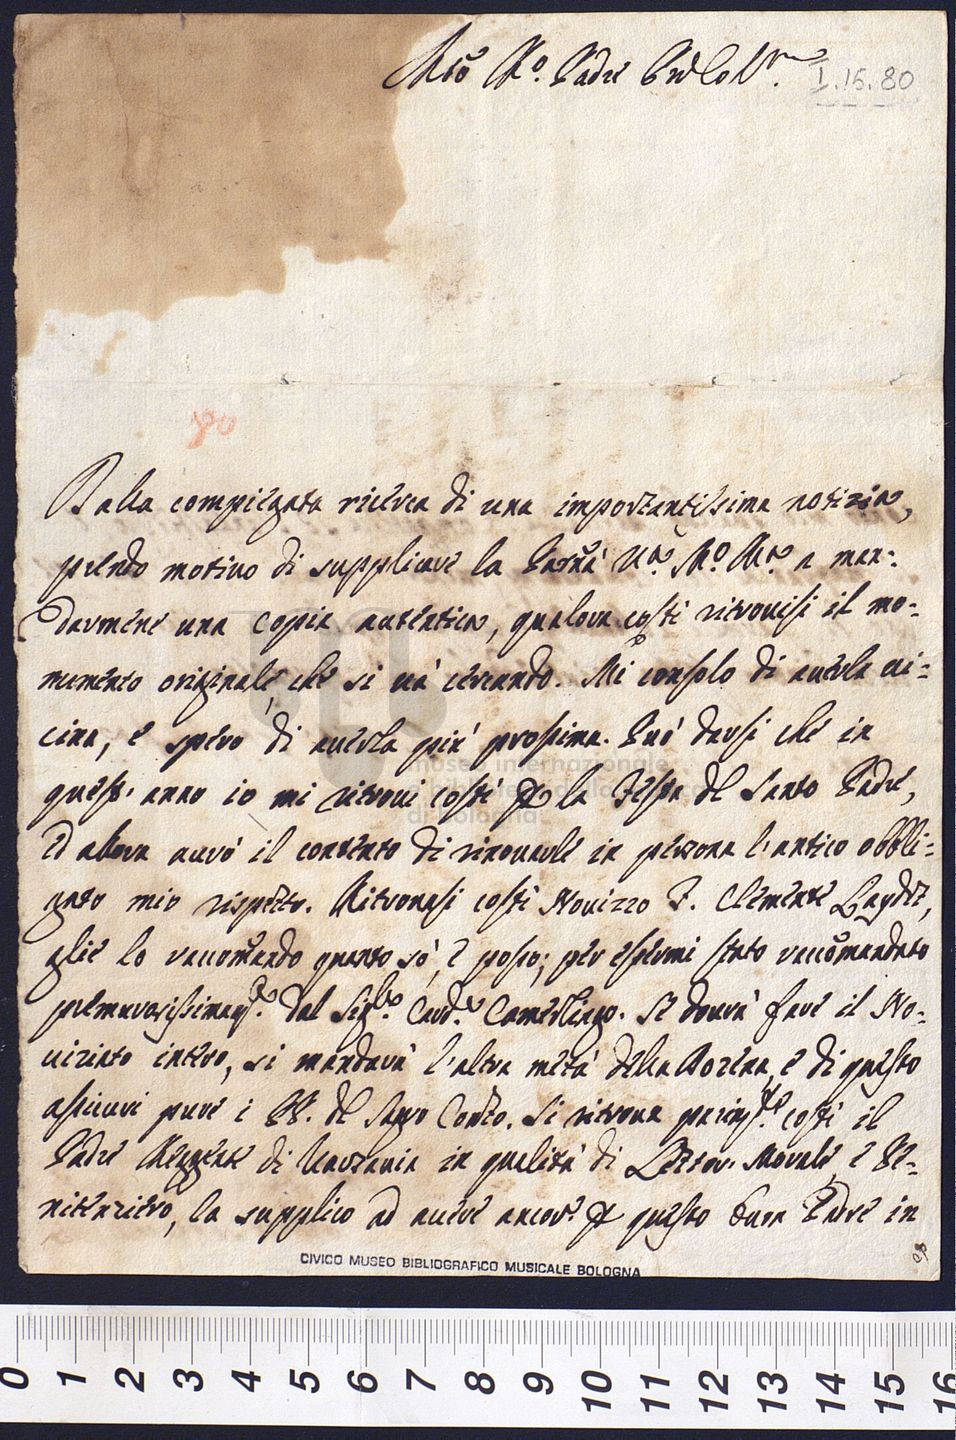 Mio Rdo. Padre
I.15.80
80
Dalla compiegata ricerca di una importantissima notizia,
prendo motivo di supplicare la Paternità Vra. Mo. Rda. a man:
darmene una copia autentica, qualora costì ritrovisi il mo:
numento originale, che si và cercando. Mi consolo di averla vi:
cina, e spero di averla più prossima. Può darsi che in
quest' anno io mi ritrovi costì per la Festa del Santo Padre,
ed allora avrò il contento di rinovarle in persona l'antico obbli:
gato mio rispetto. Ritrovasi costì Novizzo F. Clemente
glie lo raccomando quanto sò, e posso; per essermi stato raccomandato
premurosissimamte. dal Sigre. Cardl. Camerlingo. Se dovrà fare il No:
viziato intero, si manderà l'altra metà della Dozena, e di questo
assicuri pure i PP. del Sagro Convto. Si ritrova parimte. costì il
Padre di in qualità di Lettor Morale, e Pe:
nitenziero, la supplico ad avere ancor per questo buon Padre in
CIVICO MUSEO BIBLIOGRAFICO MUSICALE BOLOGNA
museo internazionale
di bologna
0 1 2 3 4 5 6 7 8 9 10 11 12 13 14 15 16